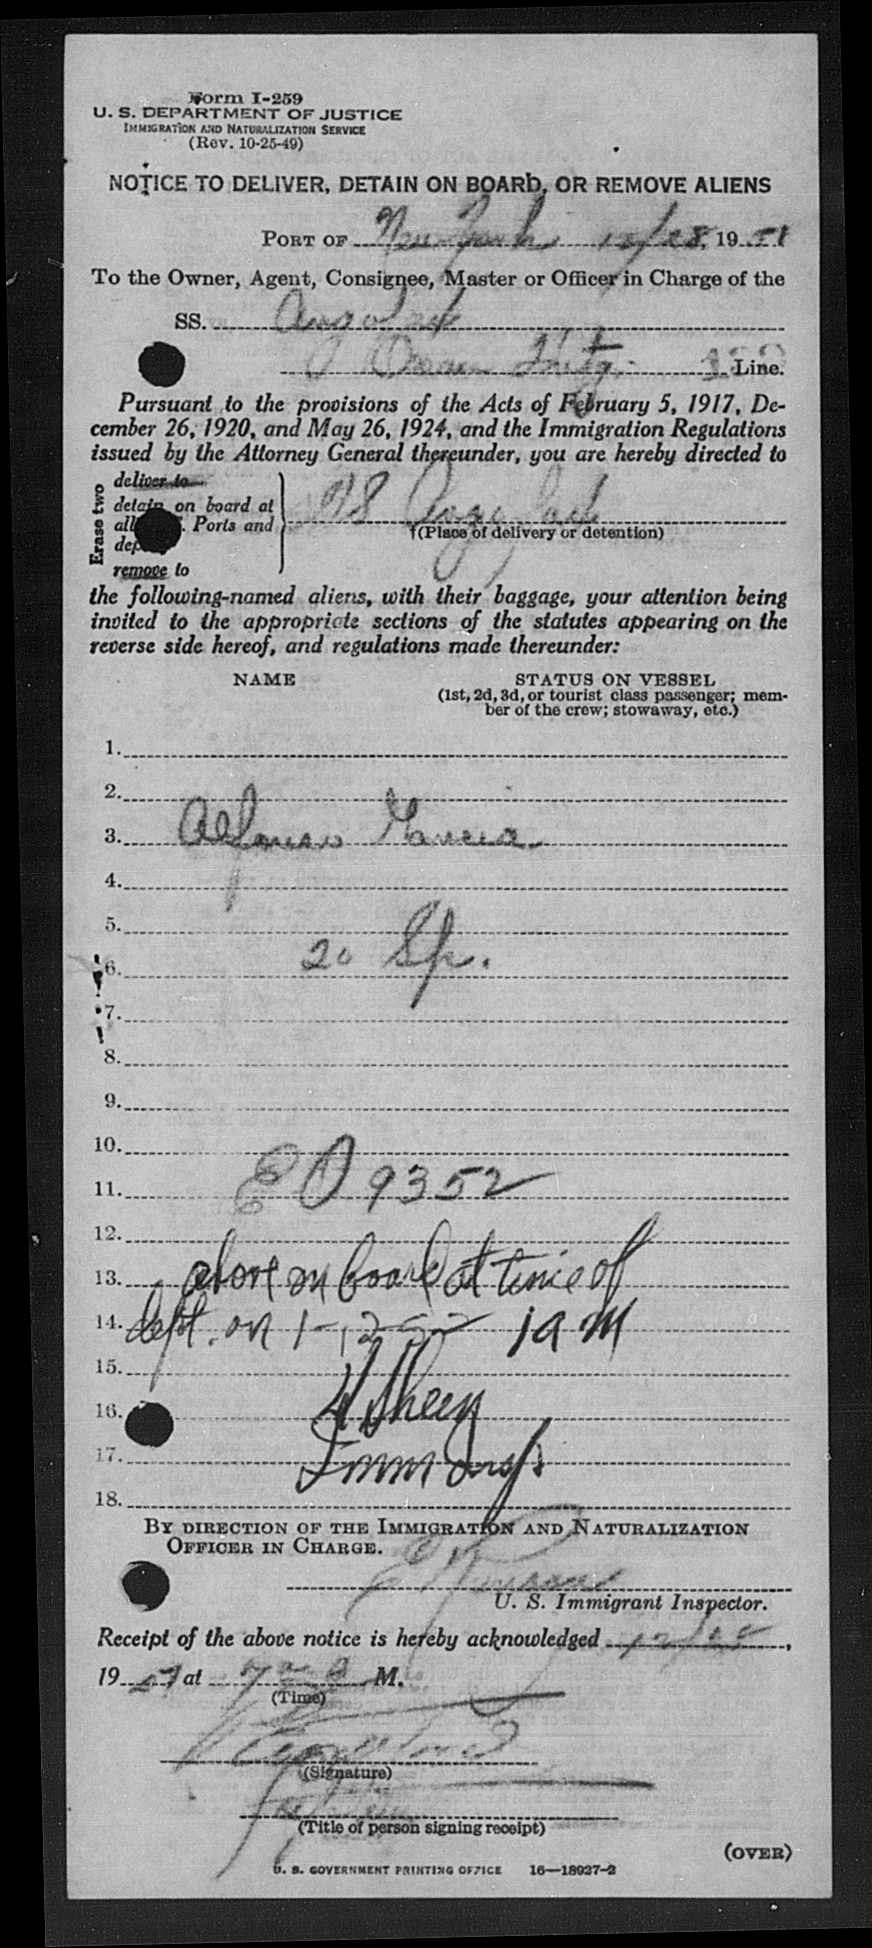 Form I-259
U. S. DEPARTMENT OF JUSTICE
IMMIGRATION AND NATURALIZATION SERVICE
(Rev. 10-25-49)
NOTICE TO DELIVER, DETAIN ON BOARD, OR REMOVE ALIENS
PORT OF New York 12/28, 1951
To the Owner, Agent, Consignee, Master or Officer in Charge of the
SS.
Line.
Pursuant to the provisions of the Acts of February 5, 1917, De-
cember 26, 1920, and May 26, 1924, and the Immigration Regulations
issued by the Attorney General thereunder, you are hereby directed to
Erase two
deliver to
detain on board at
all Ports and
remove to
†(Place of delivery or detention)
the following-named aliens, with their baggage, your attention being
invited to the appropriate sections of the statutes appearing on the
reverse side hereof, and regulations made thereunder:
NAME STATUS ON VESSEL
(1st, 2d, 3d, or tourist class passenger; mem-
ber of the crew; stowaway, etc.)
1.
2.
3. Alfonso Garcia
4.
5.
20 Sp.
6.
7.
8.
9.
10.
11. EO 9352
12.
13. above on board at time of
14. dept. on 1-12-52 1 am
15.
16. Sheen
17. Imm Insp.
18.
BY DIRECTION OF THE IMMIGRATION AND NATURALIZATION
OFFICER IN CHARGE.
U. S. Immigrant Inspector.
Receipt of the above notice is hereby acknowledged 12/28,
19 51 at M.
(Time)
(Signature)
(Title of person signing receipt)
(OVER)
U. S. GOVERNMENT PRINTING OFFICE 16—18927-2